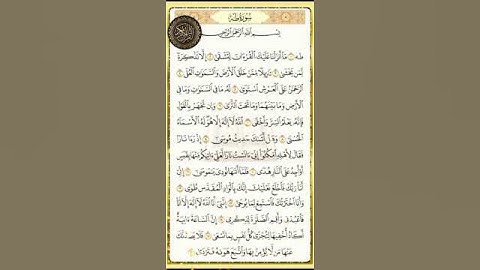 سورة طه
بسم الله الرحمن الرحيم
طه ١ ما أنزلنا عليك القرءان لتشقى ٢ إلا تذكرة
لمن يخشى ٣ تنزيلا ممن خلق الأرض والسموات العلى ٤
الرحمن على العرش استوى ٥ له ما في السموات وما في
الأرض وما بينهما وما تحت الثرى ٦ وإن تجهر بالقول
فإنه يعلم السر وأخفى ٧ الله لا إله إلا هو له الأسماء
الحسنى ٨ وهل أتىك حديث موسى ٩ إذ رءا نارا
فقال لأهله امكثوا إني ءانست نارا لعلي ءاتيكم منها بقبس
أو أجد على النار هدى ١٠ فلما أتىها نودي يموسى ١١ إني
أنا ربك فاخلع نعليك إنك بالواد المقدس طوى ١٢
وأنا اخترتك فاستمع لما يوحى ١٣ إنني أنا الله لا إله إلا أنا
فاعبدني وأقم الصلوة لذكري ١٤ إن الساعة ءاتية
أكاد أخفيها لتجزى كل نفس بما تسعى ١٥ فلا يصدنك
عنها من لا يؤمن بها واتبع هوىه فتردى ١٦